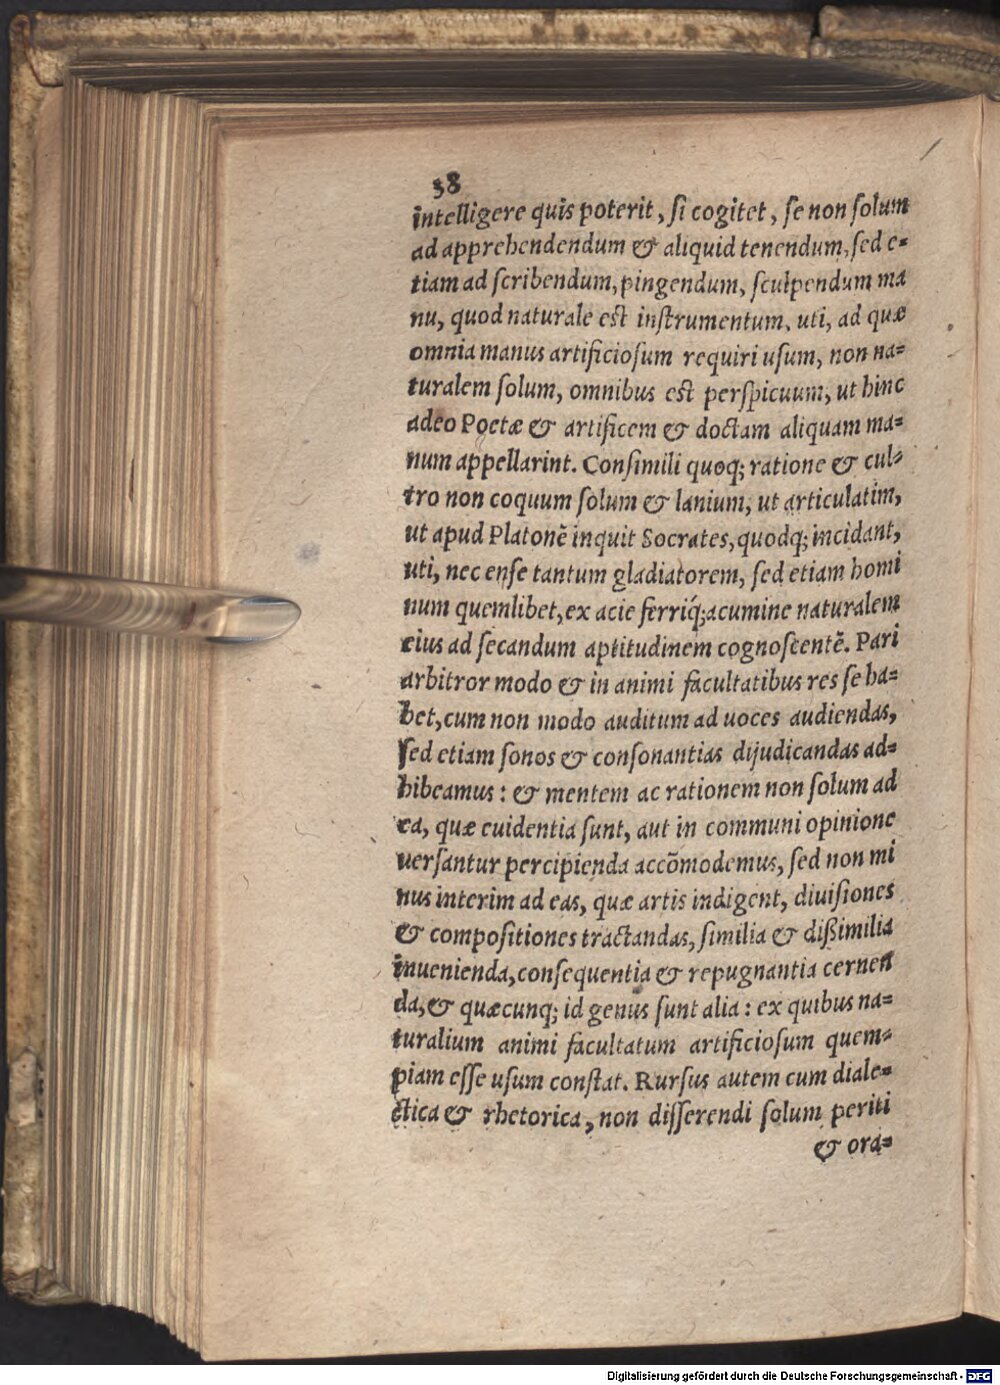 38
intelligere quis poterit, ſi cogitet, ſe non ſolum
ad apprehendendum & aliquid tenendum, ſed e=
tiam ad ſcribendum, pingendum, ſculpendum ma
nu, quod naturale est inſtrumentum, uti, ad quæ
omnia manus artificioſum requiri uſum, non na=
turalem ſolum, omnibus est perſpicuum, ut hinc
adeo Poetæ & artificem & doctam aliquam ma=
num appellarint. Conſimili quoq; ratione & cul=
tro non coquum ſolum & lanium, ut articulatim,
ut apud Platonē inquit Socrates, quodq; incidant,
uti, nec enſe tantum gladiatorem, ſed etiam homi
num quemlibet, ex acie ferriq́; acumine naturalem
eius ad ſecandum aptitudinem cognoſcentē. Pari
arbitror modo & in animi facultatibus res ſe ha=
bet, cum non modo auditum ad uoces audiendas,
ſed etiam ſonos & conſonantias dijudicandas ad=
hibeamus: & mentem ac rationem non ſolum ad
ea, quæ euidentia ſunt, aut in communi opinione
uerſantur percipienda accōmodemus, ſed non mi
nus interim ad eas, quæ artis indigent, diuiſiones
& compoſitiones tractandas, ſimilia & dißimilia
inuenienda, conſequentia & repugnantia cernen
da, & quæcunq; id genus ſunt alia: ex quibus na=
turalium animi facultatum artificioſum quem=
piam eſſe uſum conſtat. Rurſus autem cum diale=
ctica & rhetorica, non diſſerendi ſolum periti
& ora=
Digitalisierung gefördert durch die Deutsche Forschungsgemeinschaft - DFG